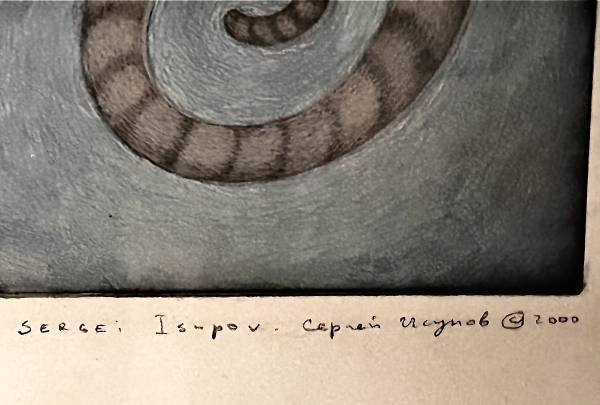 SERGEi Isupov. Сергей Исупов © 2000